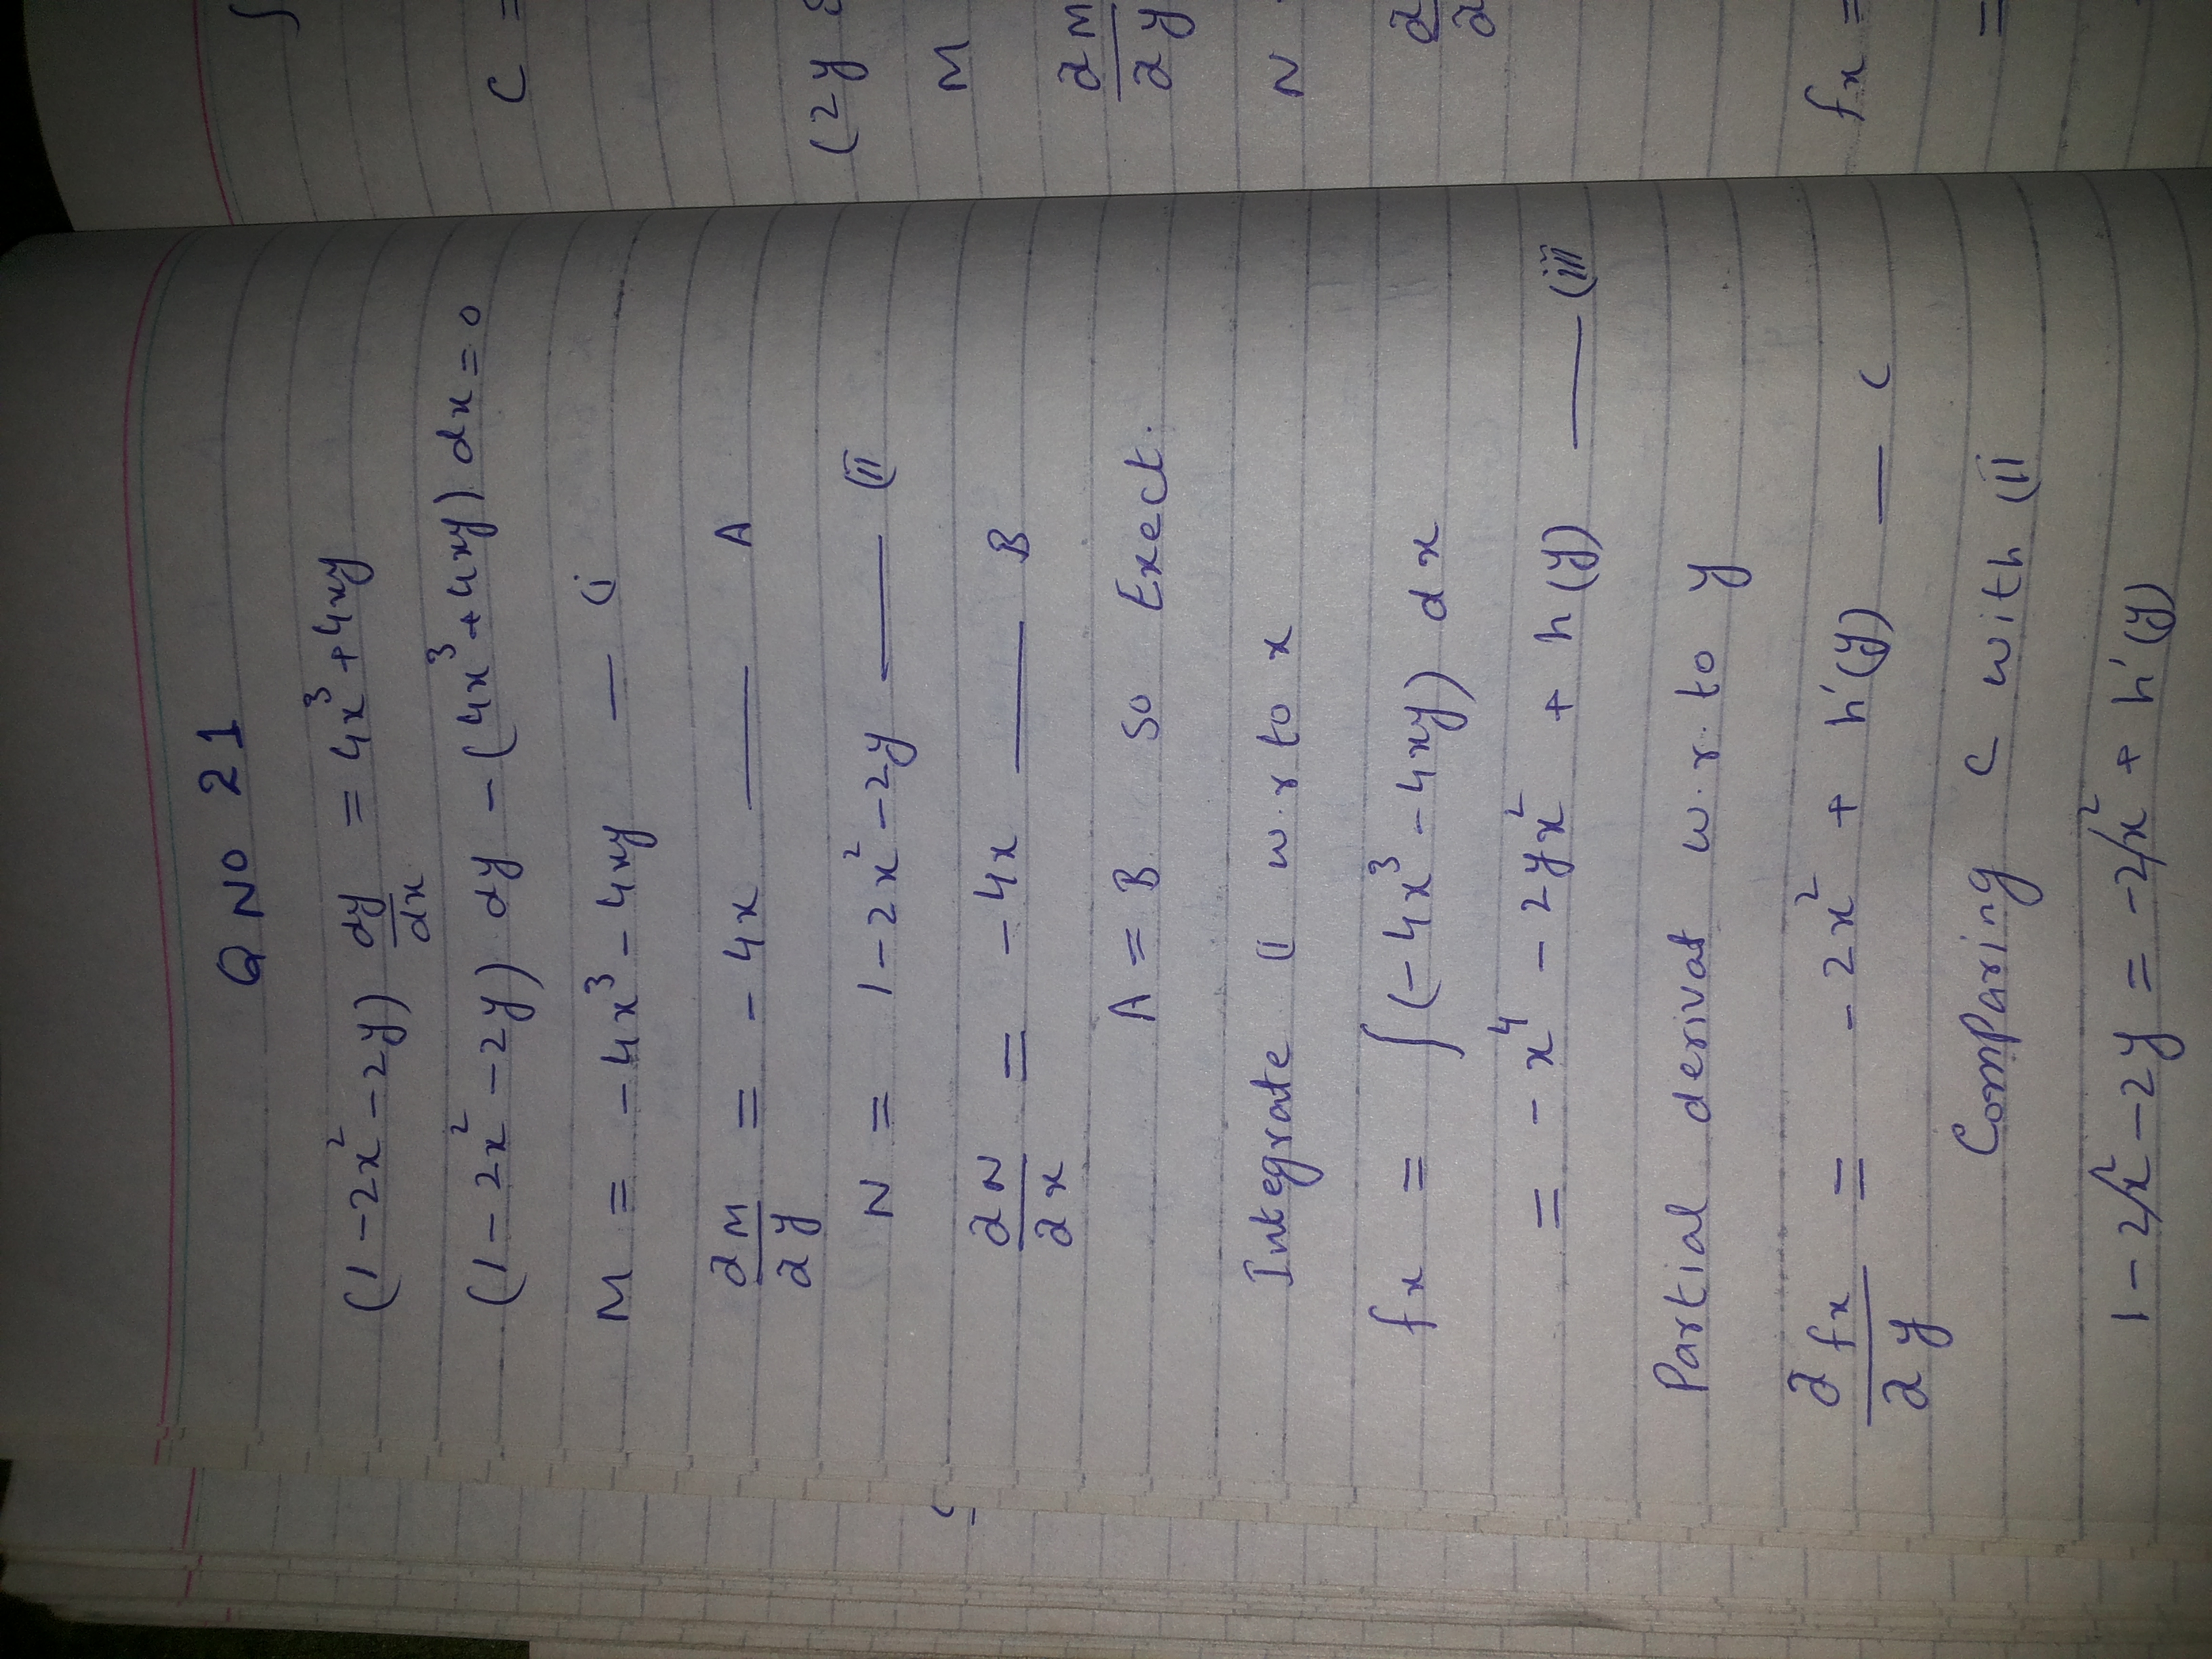 Q NO 21
(1 - 2x² - 2y) dy/dx = 4x³ + 4xy
(1 - 2x² - 2y) dy - (4x³ + 4xy) dx = 0
M = -4x³ - 4xy — (i
∂M/∂y = -4x — A
N = 1 - 2x² - 2y — (ii
∂N/∂x = -4x — B
A = B so Exect.
Integrate (i w.r to x
fx = ∫(-4x³ - 4xy) dx
= -x⁴ - 2yx² + h(y) — (iii
Partial derivat w.r. to y
∂fx/∂y = -2x² + h'(y) — C
Comparing C with (ii
1 - 2x² - 2y = -2x² + h'(y)
∫
C =
(2y
M
∂M/∂y
N
∂/∂
fx =
=